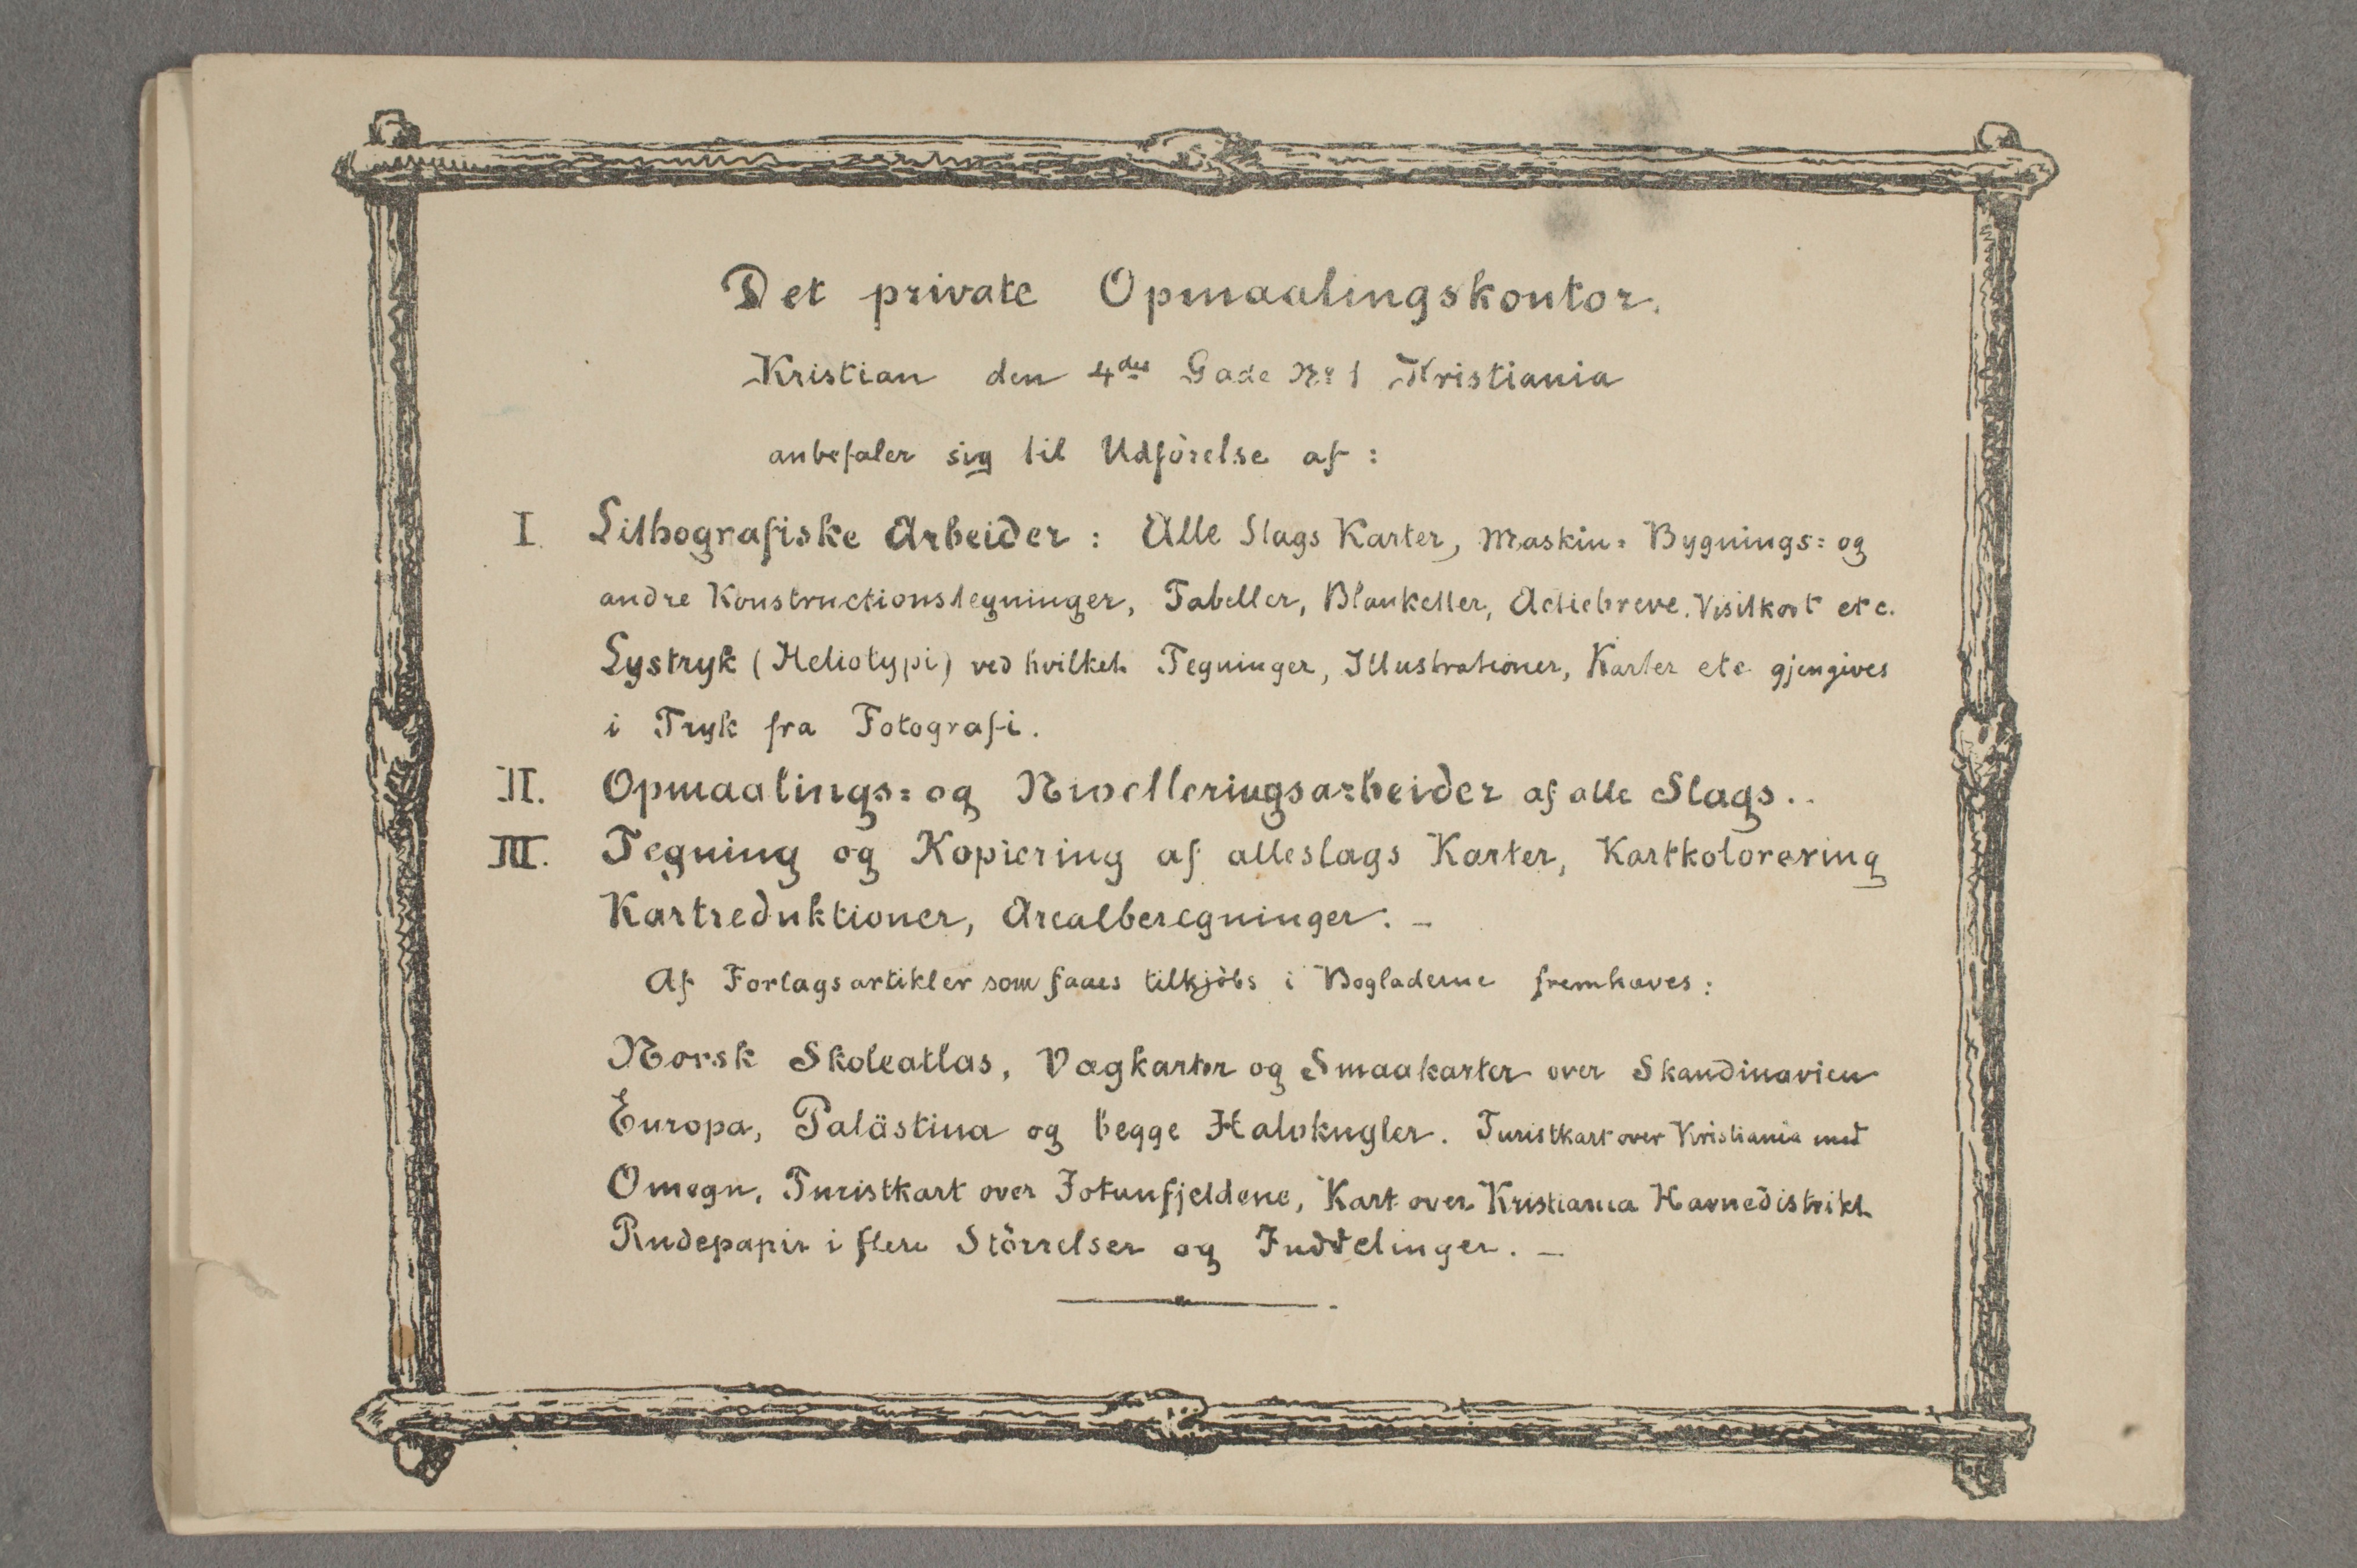 Det private Opmaalingskontor.
Kristian den 4des Gade No 1 Kristiania
anbefaler sig til Udförelse af :
I. Lithografiske Arbeider : Alle Slags Karter, Maskin= Bygnings= og
andre Konstructionstegninger, Tabeller, Blanketter, Actiebreve. Visitkort etc.
Lystryk (Heliotypi) ved hvilket Tegninger, Illustrationer, Karter etc gjengives
i Tryk fra Fotografi.
II. Opmaalings= og Nivelleringsarbeider af alle Slags..
III. Tegning og Kopiering af alleslags Karter, Kartkolorering
Kartreduktioner, Arealberegninger. –
Af Forlagsartikler som faaes tilkjöbs i Bogladerne fremhæves :
Norsk Skoleatlas, Vægkarter og Smaakarter over Skandinavien
Europa, Palästina og begge Halvkugler. Turistkart over Kristiania med
Omegn, Turistkart over Jotunfjeldene, Kart over Kristiania Havnedistrikt
Rudepapir i flere Störrelser og Inddelinger. –